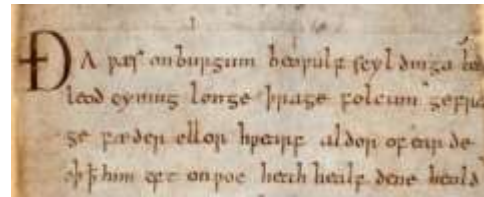 ÐA ƿæs onburgum beoƿulf scyldinga leo
leod cyning longe þrage folcum gefræ
ge fæder ellor hƿearf aldor of earde
oþ ꝥ him eft onƿoc heah healf dene heold